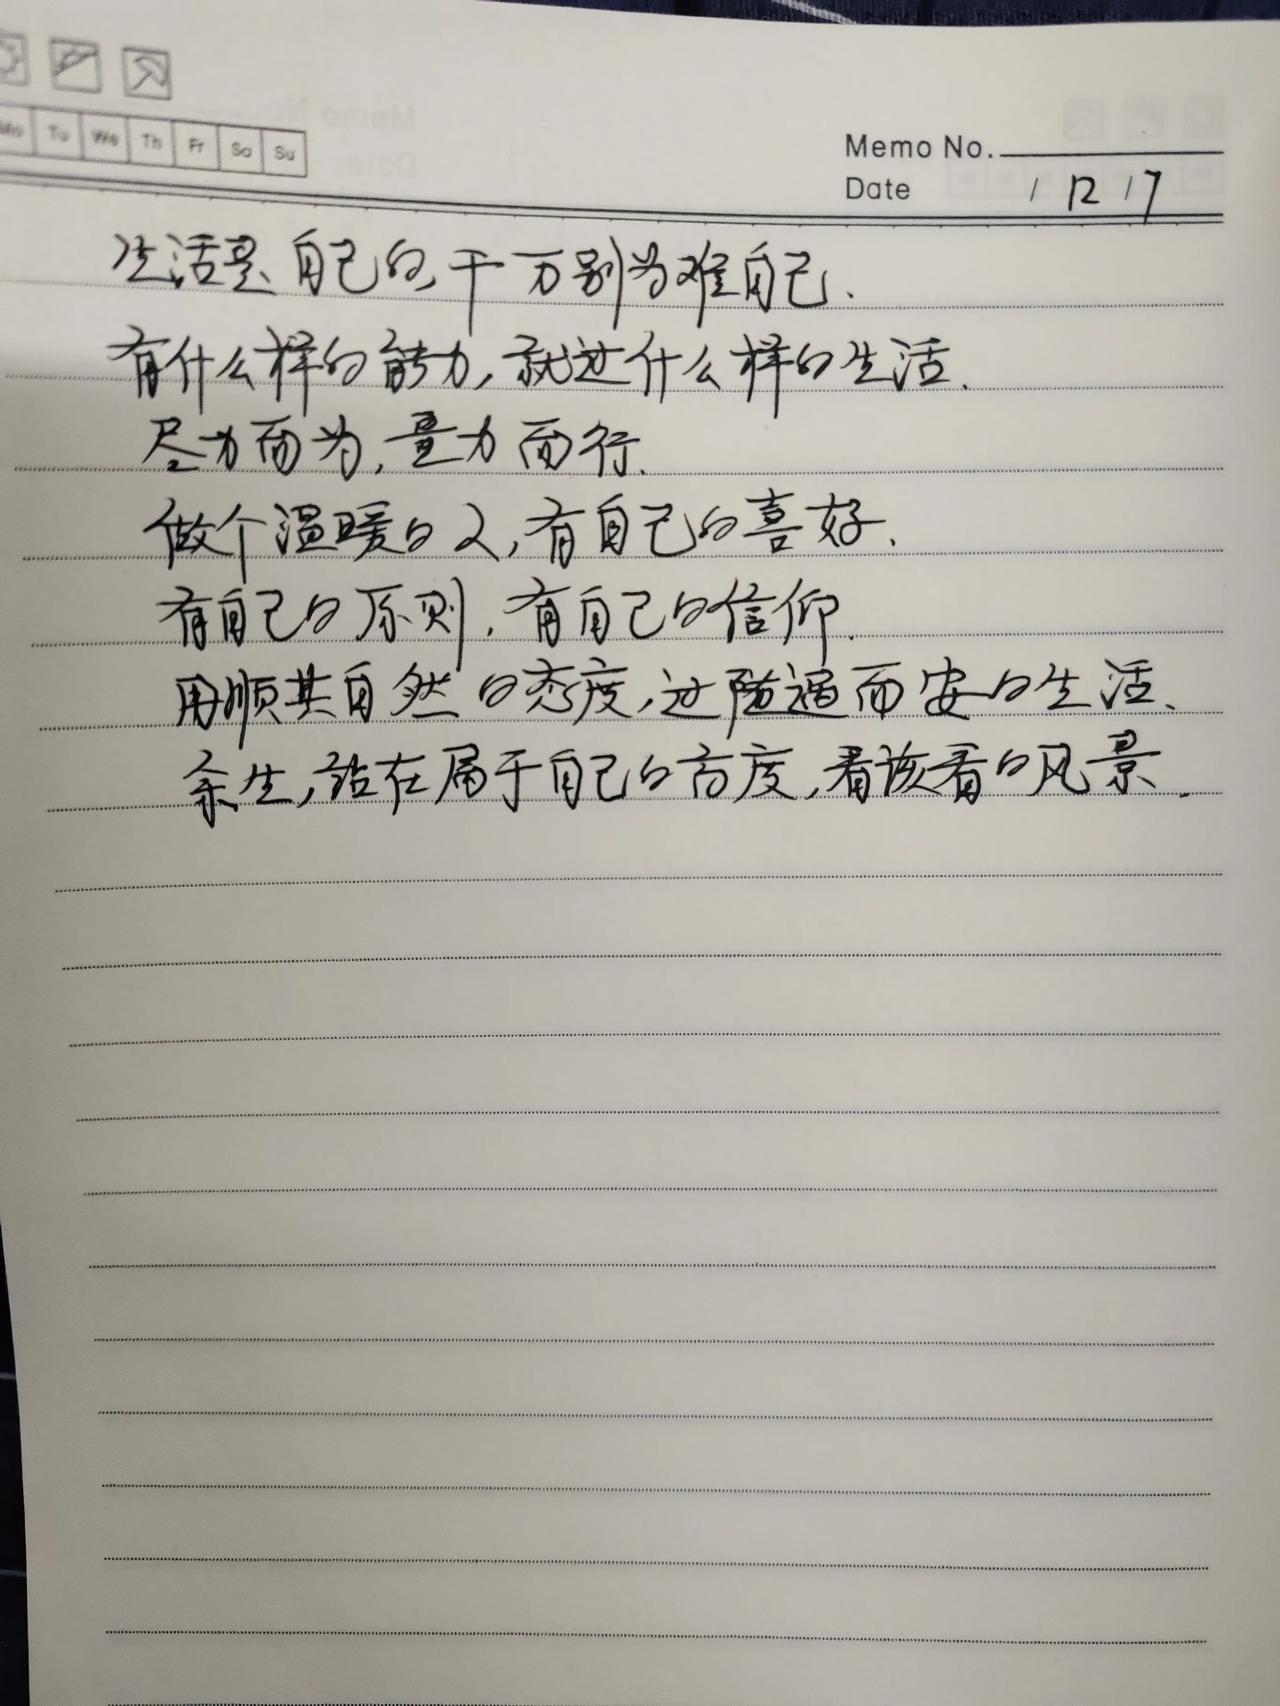 Mo Tu We Th Fr Sa Su
Memo No.
Date / 12 / 7
生活是自己的,千万别为难自己.
有什么样的能力,就过什么样的生活.
尽力而为,量力而行.
做个温暖的人,有自己的喜好.
有自己的原则,有自己的信仰.
用顺其自然的态度,过随遇而安的生活、
余生,站在属于自己的高度,看该看的风景.